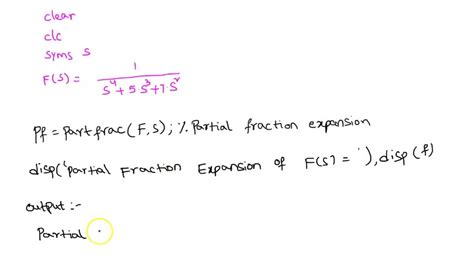 clear
clc
syms s
F(s) = 1 / s^4 + 5·s^3 + 7·s^r
Pf = partfrac(F,s); % Partial fraction expansion
disp('Partial Fraction Expansion of F(s) = '), disp(f)
output :-
Partial